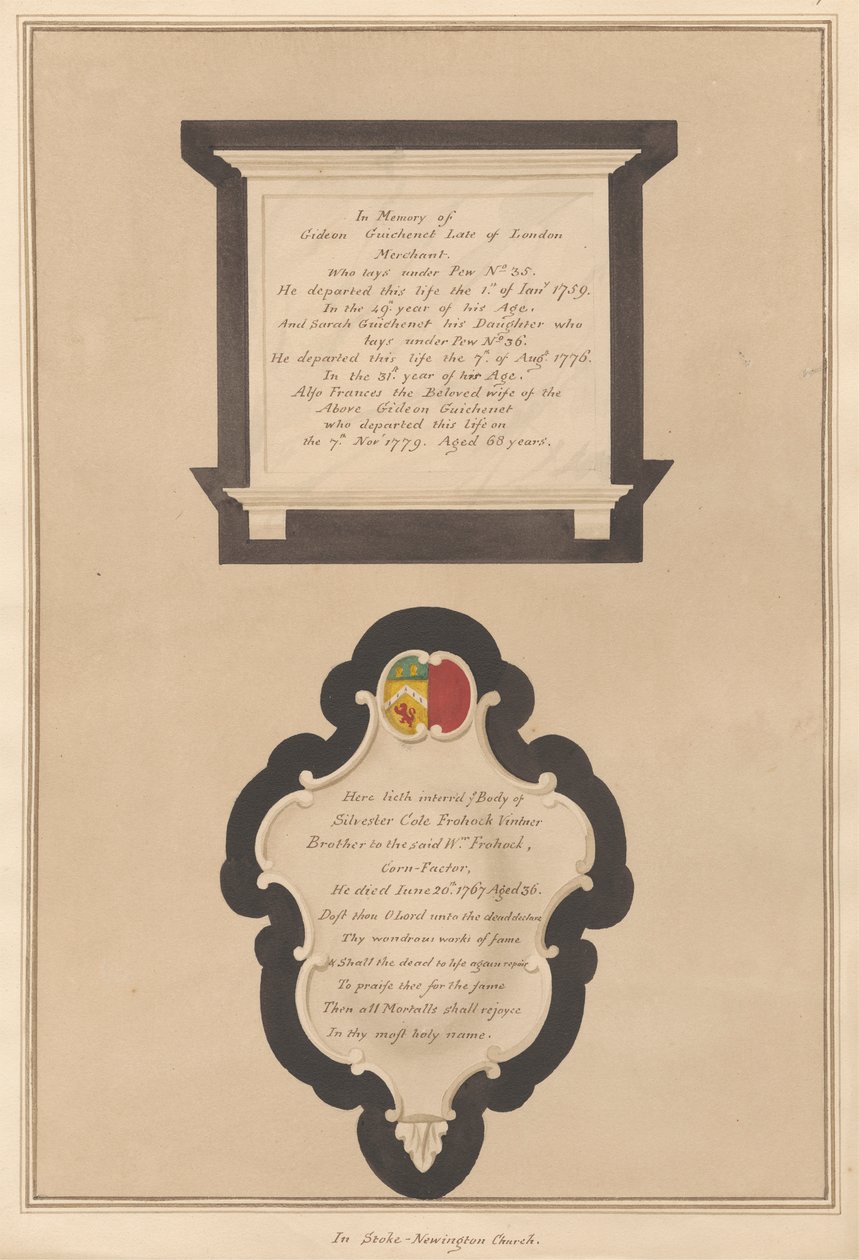 In Memory of
Gideon Guichenet Late of London
Merchant.
Who lays under Pew Nº 35.
He departed this life the 1.st of Ianʸ 1759.
In the 49.th year of his Age.
And Sarah Guichenet his Daughter who
lays under Pew Nº 36.
He departed this life the 7.th of Augt. 1776.
In the 31.st year of his Age.
Alſo Frances the Beloved wife of the
Above Gideon Guichenet
who departed this life on
the 7.th Novʳ 1779. Aged 68 years.
Here lieth interr'd yᵉ Body of
Silvester Cole Frohock Vintner
Brother to the said Wᵐ Frohock,
Corn-Factor,
He died Iune 20.th 1767 Aged 36.
Doſt thou O Lord unto the dead declare
Thy wondrous works of fame
& Shall the dead to life again repair
To praiſe thee for the ſame
Then all Mortalls shall rejoyce
In thy moſt holy name.
In Stoke-Newington Church.